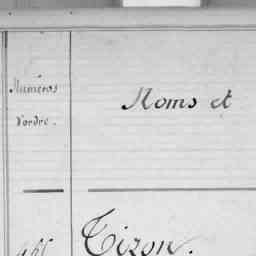 Numéros
d'ordre.
Noms et
Tizon.